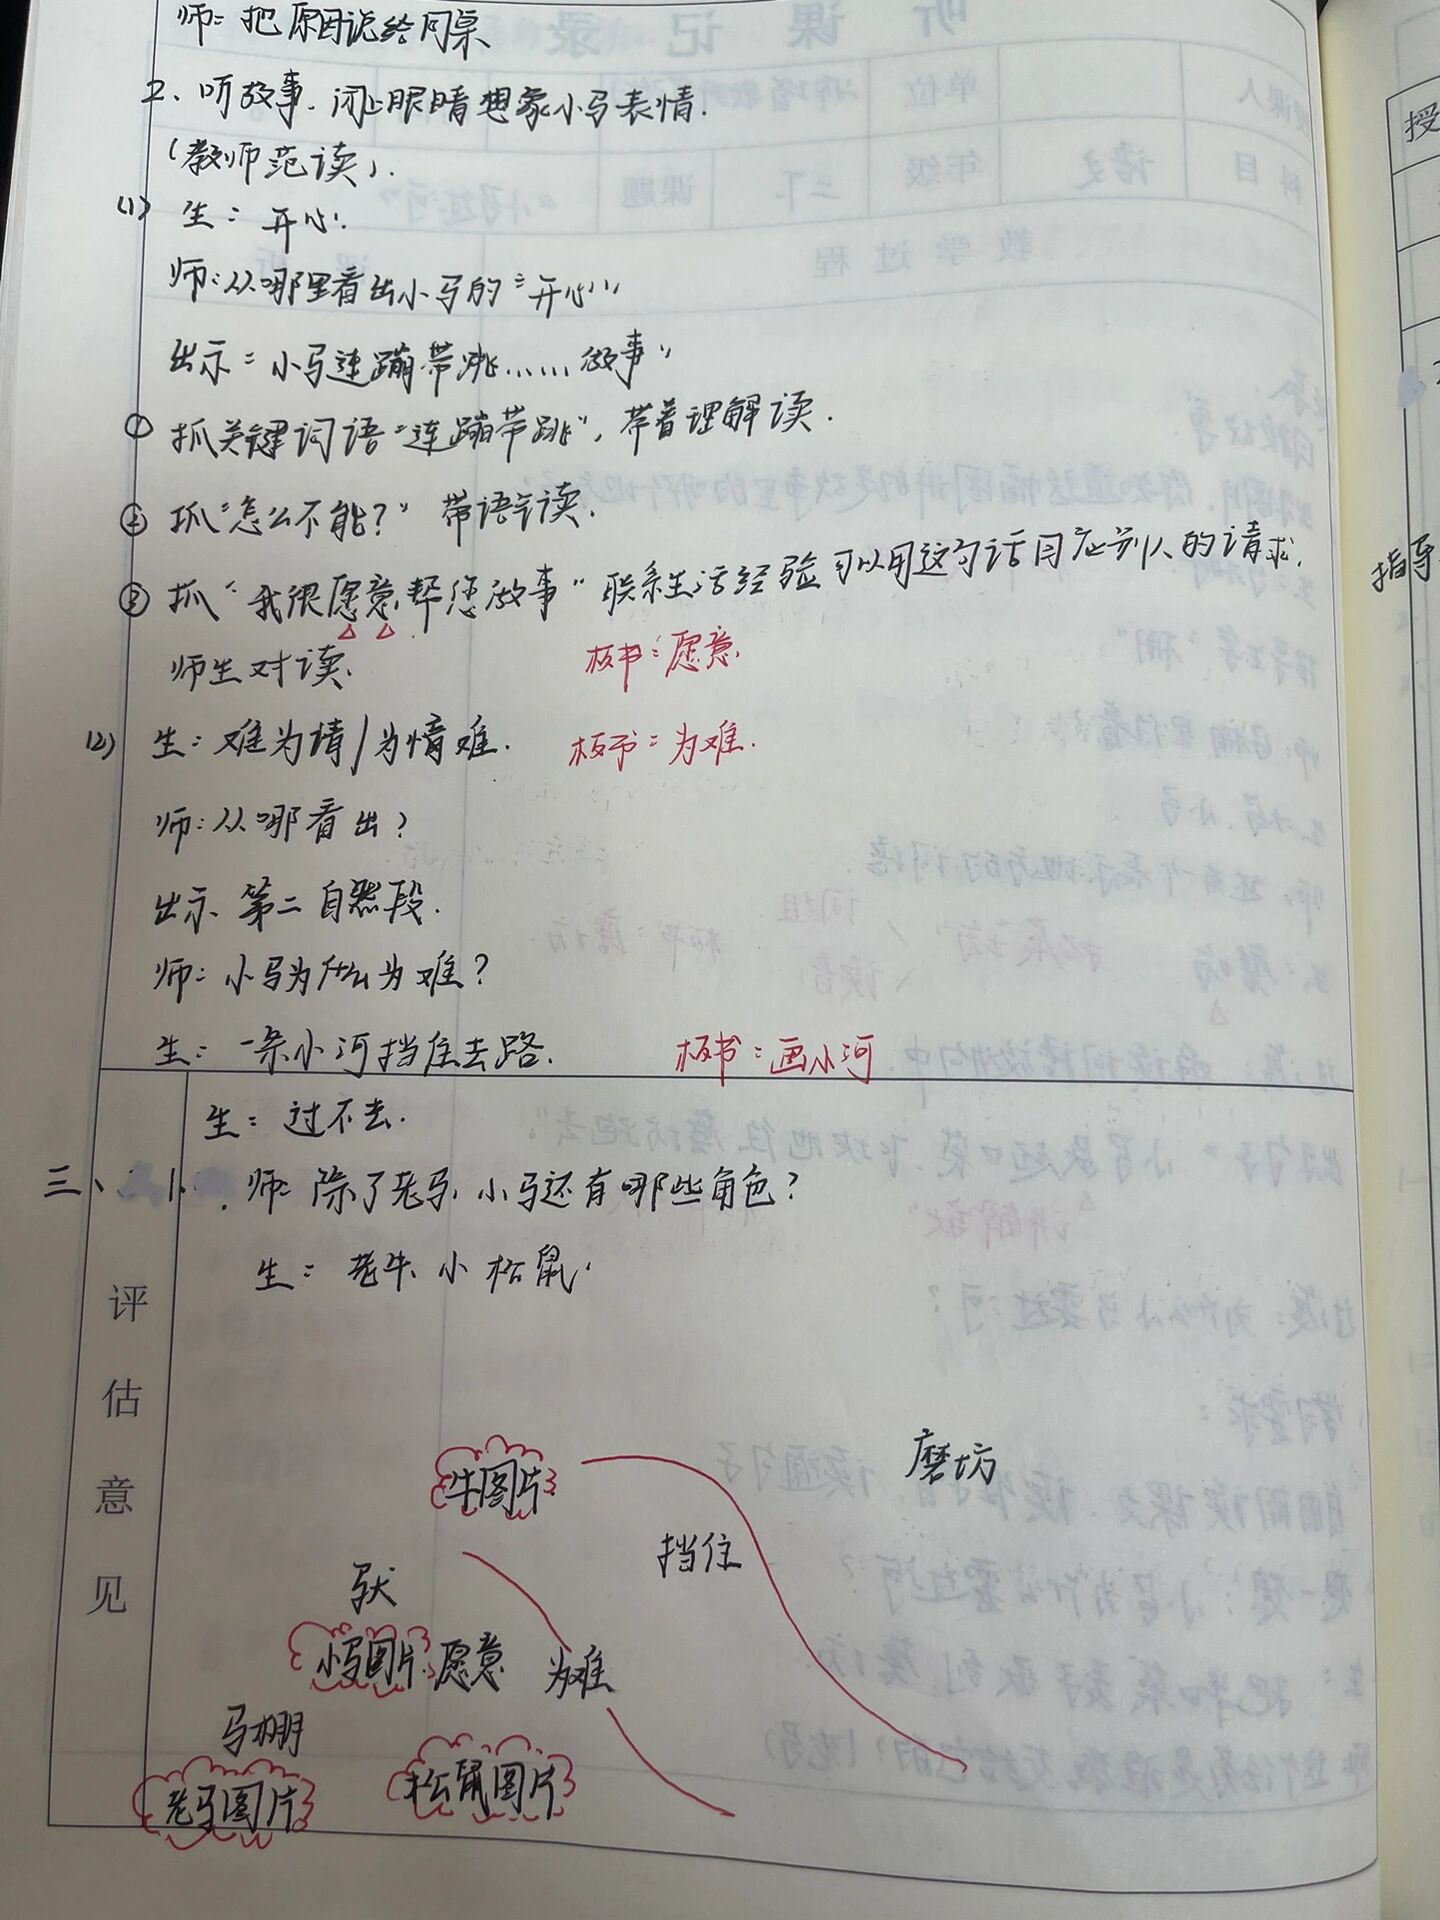 师：把原因说给同桌
2、听故事、闭上眼睛想象小马表情.
（教师范读）.
(1) 生：开心.
师：从哪里看出小马的“开心”
出示：小马连蹦带跳……做事”
① 抓关键词语“连蹦带跳”，带着理解读.
② 抓“怎么不能？” 带语气读.
③ 抓“我很愿意帮您做事”联系生活经验可以用这句话回应别人的请求.
师生对读. 板书：愿意.
(2) 生：难为情/为情难. 板书：为难.
师：从哪看出？
出示 第二自然段.
师：小马为什么为难？
生：一条小河挡住去路. 板书：画小河
生：过不去.
三、1. 师：除了老马、小马还有哪些角色？
生：老牛、小松鼠.
评估意见
磨坊
牛图片
挡住
驮
小马图片 愿意 为难
马棚
老马图片 松鼠图片
授
指导